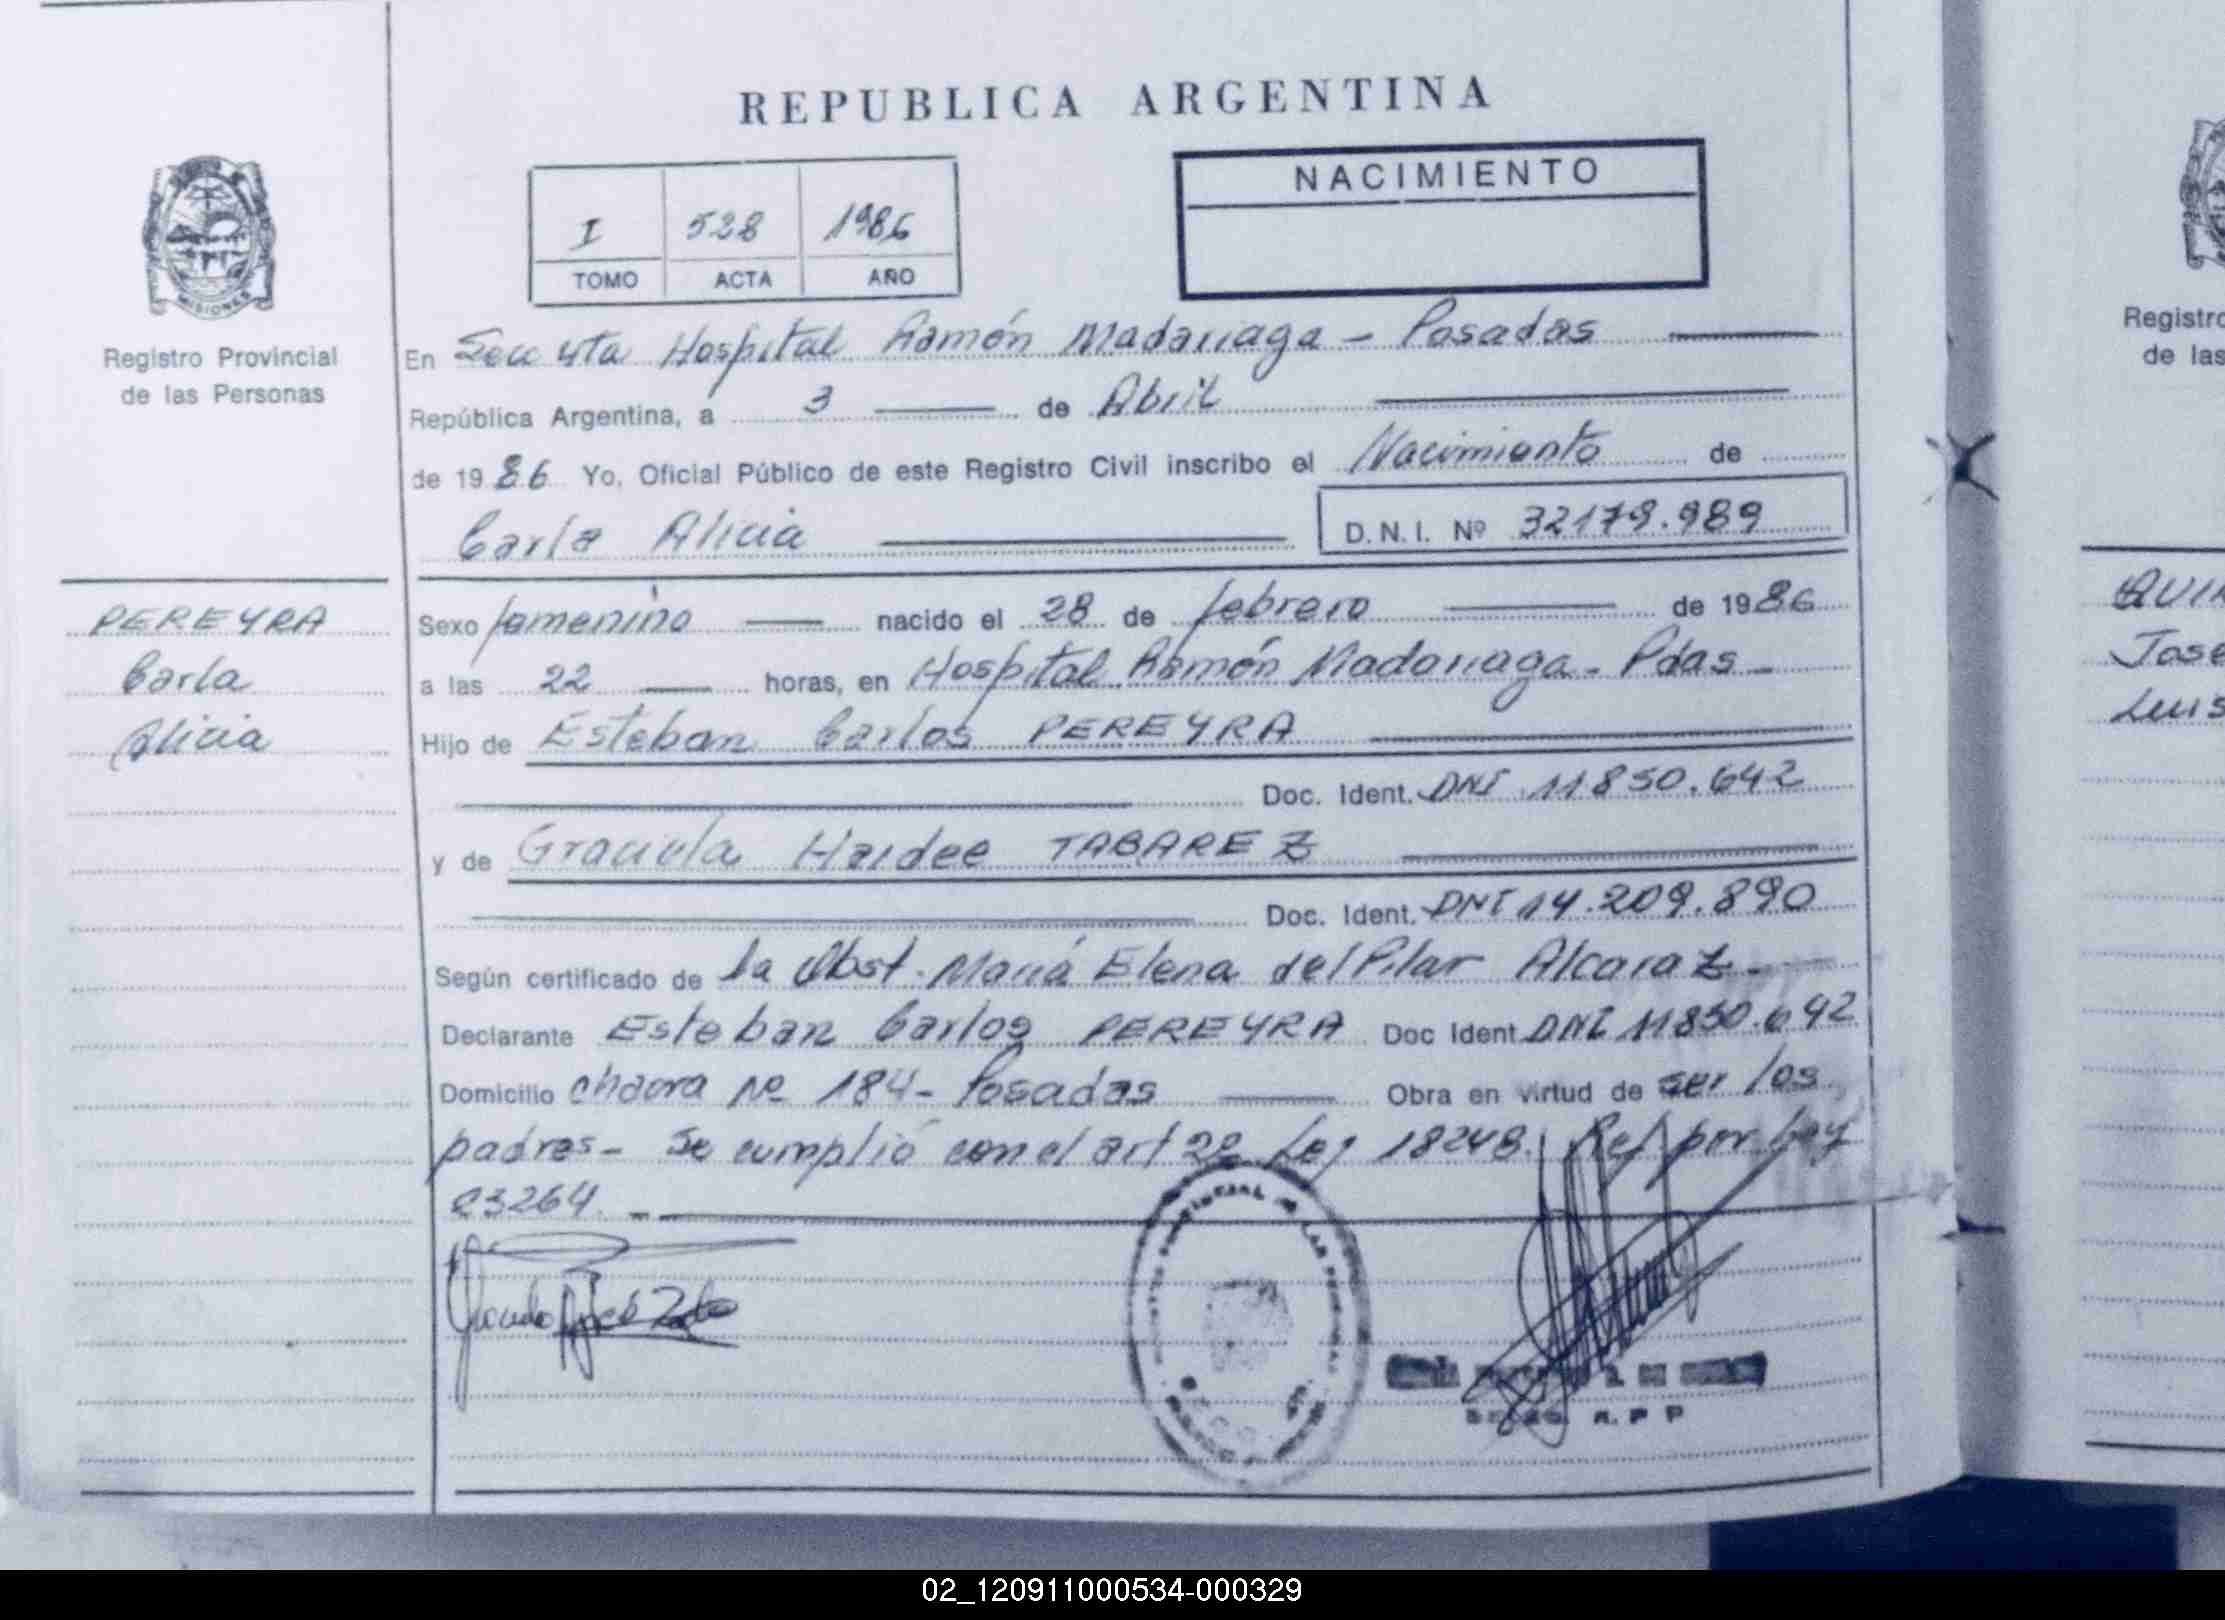 REPUBLICA ARGENTINA
NACIMIENTO
I 528 1986
TOMO ACTA AÑO
MISIONES
Registro Provincial
de las Personas
En Secc 4ta Hospital Ramón Madariaga - Posadas
República Argentina, a 3 de Abril
de 1986 Yo, Oficial Público de este Registro Civil inscribo el Nacimiento de
Carla Alicia D.N.I. Nº 32179.989
PEREYRA
Carla
Alicia
Sexo femenino nacido el 28 de febrero de 1986
a las 22 horas, en Hospital Ramón Madariaga - Pdas -
Hijo de Esteban Carlos PEREYRA
Doc. Ident. DNI 11850.642
y de Graciela Haidee TABAREZ
Doc. Ident. DNI 14.209.890
Según certificado de la Obst. María Elena del Pilar Alcaraz -
Declarante Esteban Carlos PEREYRA Doc Ident DNI 11850.642
Domicilio chacra Nº 184 - Posadas Obra en virtud de ser los
padres - Se cumplió con el art 2º Ley 18248. Ref por Ley
23264. -
R. P. P
Registro
de las
QUI
Jose
Luis
02_120911000534-000329